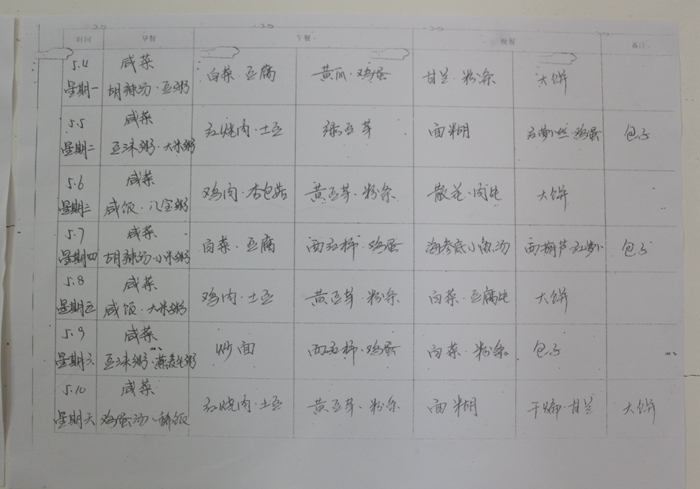 时间 早餐 午餐 晚餐 备注
5.4 咸菜 白菜·豆腐 黄瓜·鸡蛋 甘兰·粉条 大饼
星期一 胡辣汤·豆粥
5.5 咸菜 红烧肉·土豆 绿豆芽 面糊 鸡蛋 包子
星期二 豆沫粥·大米粥
5.6 咸菜 鸡肉·杏包菇 黄豆芽·粉条 散花·肉炖 大饼
星期三 咸饭·八宝粥
5.7 咸菜 白菜·豆腐 西红柿·鸡蛋 海参底小鱼汤 西葫芦 包子
星期四 胡辣汤·小米粥
5.8 咸菜 鸡肉·土豆 黄豆芽·粉条 白菜·豆腐炖 大饼
星期五 咸饭·大米粥
5.9 咸菜 炒面 西红柿·鸡蛋 白菜·粉条 包子
星期六 豆沫粥·燕麦粥
5.10 咸菜 红烧肉·土豆 黄豆芽·粉条 面糊 甘兰 大饼
星期六 鸡蛋汤·稀饭